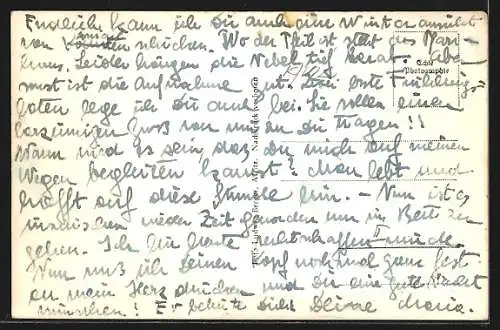 Endlich kann ich Dir auch eine Winteransicht
von schicken. Wo der Pfeil ist steht das
haus. Leider hängen die Nebel tief herab.
ist die Aufnahme gut. Zwei erste Frühlings
boten lege ich Dir auch bei. Sie sollen einen
Gruß von mir zu Dir tragen!!
Wann wird es sein, daß Du mich auf meinen
Wegen begleiten kannst? Man lebt und
hofft auf diese Stunde hin. - Nun ist es
inzwischen wieder Zeit geworden um in Bett zu
gehen. Ich bin heute rechtschaffen müde.
Nun muß ich Deinen Kopf nochmal ganz fest
an mein Herz drücken und Dir eine gute Nacht
wünschen! behüte Dich! Deine Maria.
Echte
Photographie
Nachdruck verboten